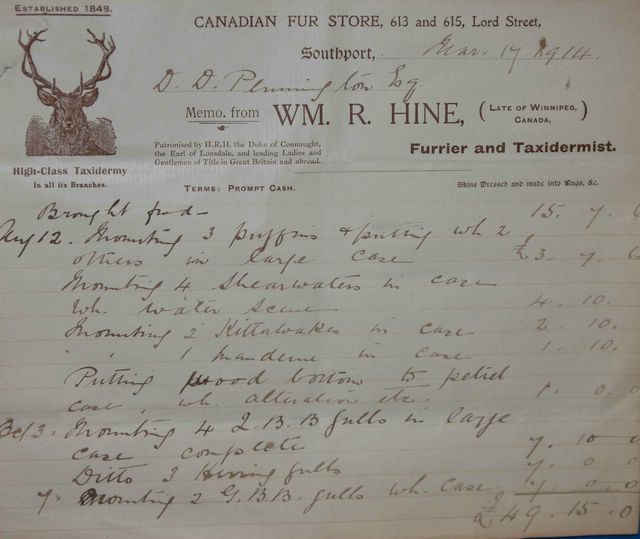 Established 1848.
CANADIAN FUR STORE, 613 and 615, Lord Street,
Southport, Mar. 17 1914.
D. D. Pennington Esq
Memo. from WM. R. HINE, (LATE OF WINNIPEG, CANADA,)
Patronised by H.R.H. the Duke of Connaught,
the Earl of Lonsdale, and leading Ladies and
Gentlemen of Title in Great Britain and abroad.
Furrier and Taxidermist.
High-Class Taxidermy
In all its Branches.
TERMS: PROMPT CASH.
Skins Dressed and made into Rugs, &c.
Brought fwd - 15. 7. 6
Aug 12. Mounting 3 puffins & putting wh 2
others in large case £3. 7. 6
Mounting 4 Shearwaters in case
wh. water scene 4. 10.
Mounting 2 Kittawakes in case 2. 10.
" 1 in case 1. 10.
Putting wood bottom to petrel
case, wh. alteration etc. 1. 0. 0
3. Mounting 4 L. B. B gulls in large
case complete 7. 10 0
Ditto 3 Herring gulls 7. 0. 0
7. Mounting 2 G. B. B. gulls wh. case 7. 0. 0
£49. 15. 0